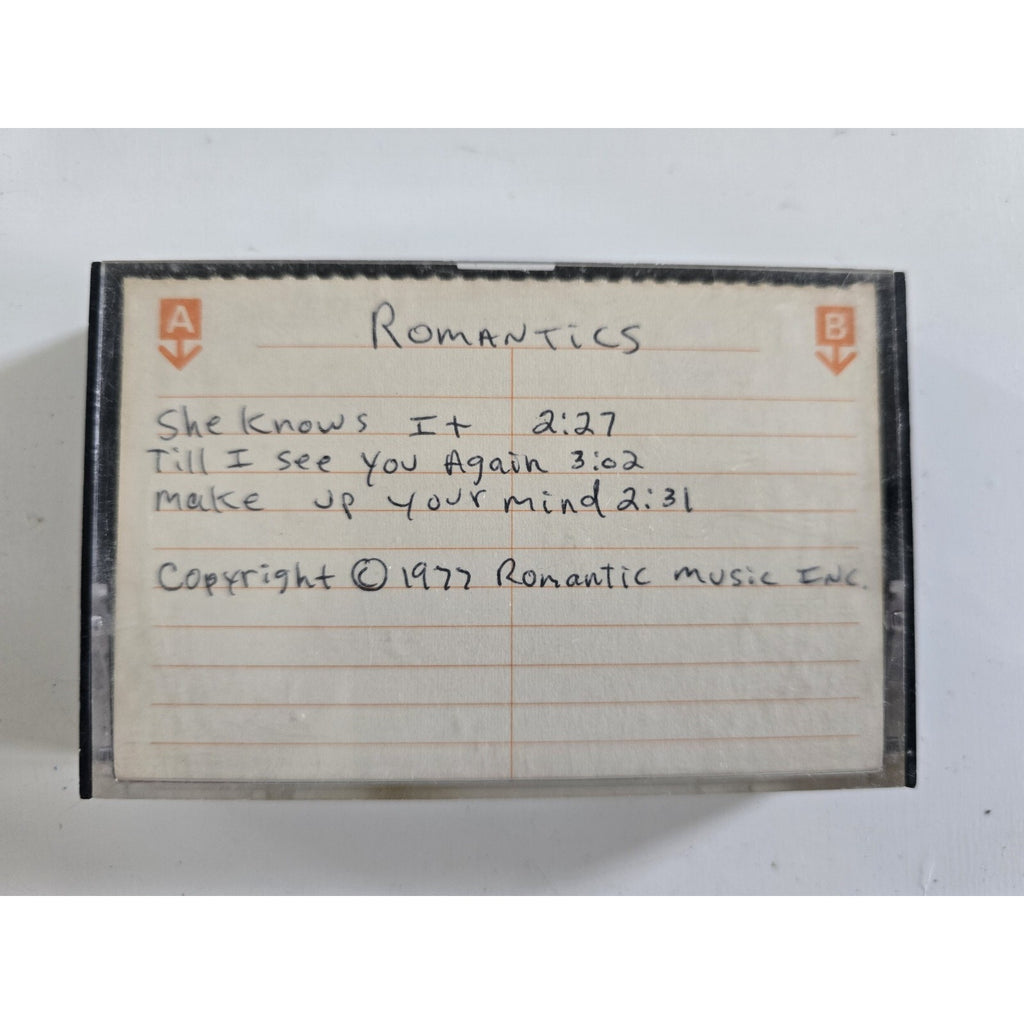 A
B
ROMANTICS
She Knows It 2:27
Till I see you Again 3:02
make up your mind 2:31
Copyright © 1977 Romantic music INC.